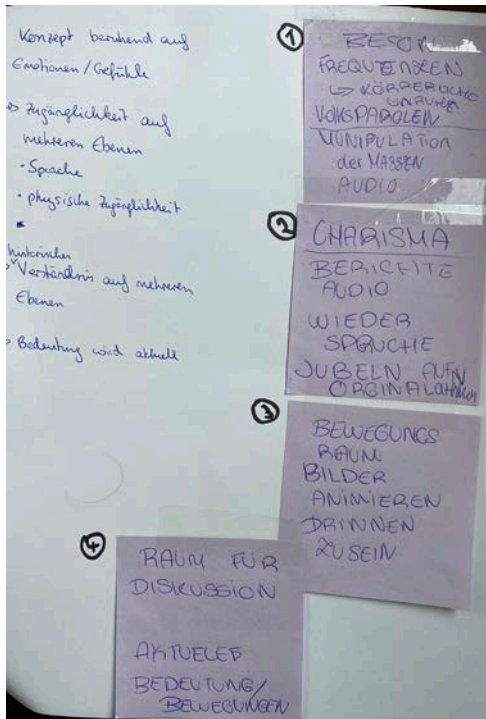 Konzept beruhend auf
Emotionen / Gefühle
Zugänglichkeit auf
mehreren Ebenen
• Sprache
• physische Zugänglichkeit
historisches
Verständnis auf mehreren
Ebenen
Bedeutung wird aktuell
1
FREQUENZEN
↳ KÖRPERLICHE
UNRUHE
VOLKSPAROLEN
MUNIPULATION
der MASSEN
AUDIO
2
CHARISMA
BERICHTE
AUDIO
WIEDER
SPRÜCHE
JUBELN
3
BEWEGUNGS
RAUM
BILDER
ANIMIEREN
DRINNEN
ZU SEIN
4
RAUM FÜR
DISKUSSION
AKTUELLE
BEDEUTUNG/
BEWEGUNGEN